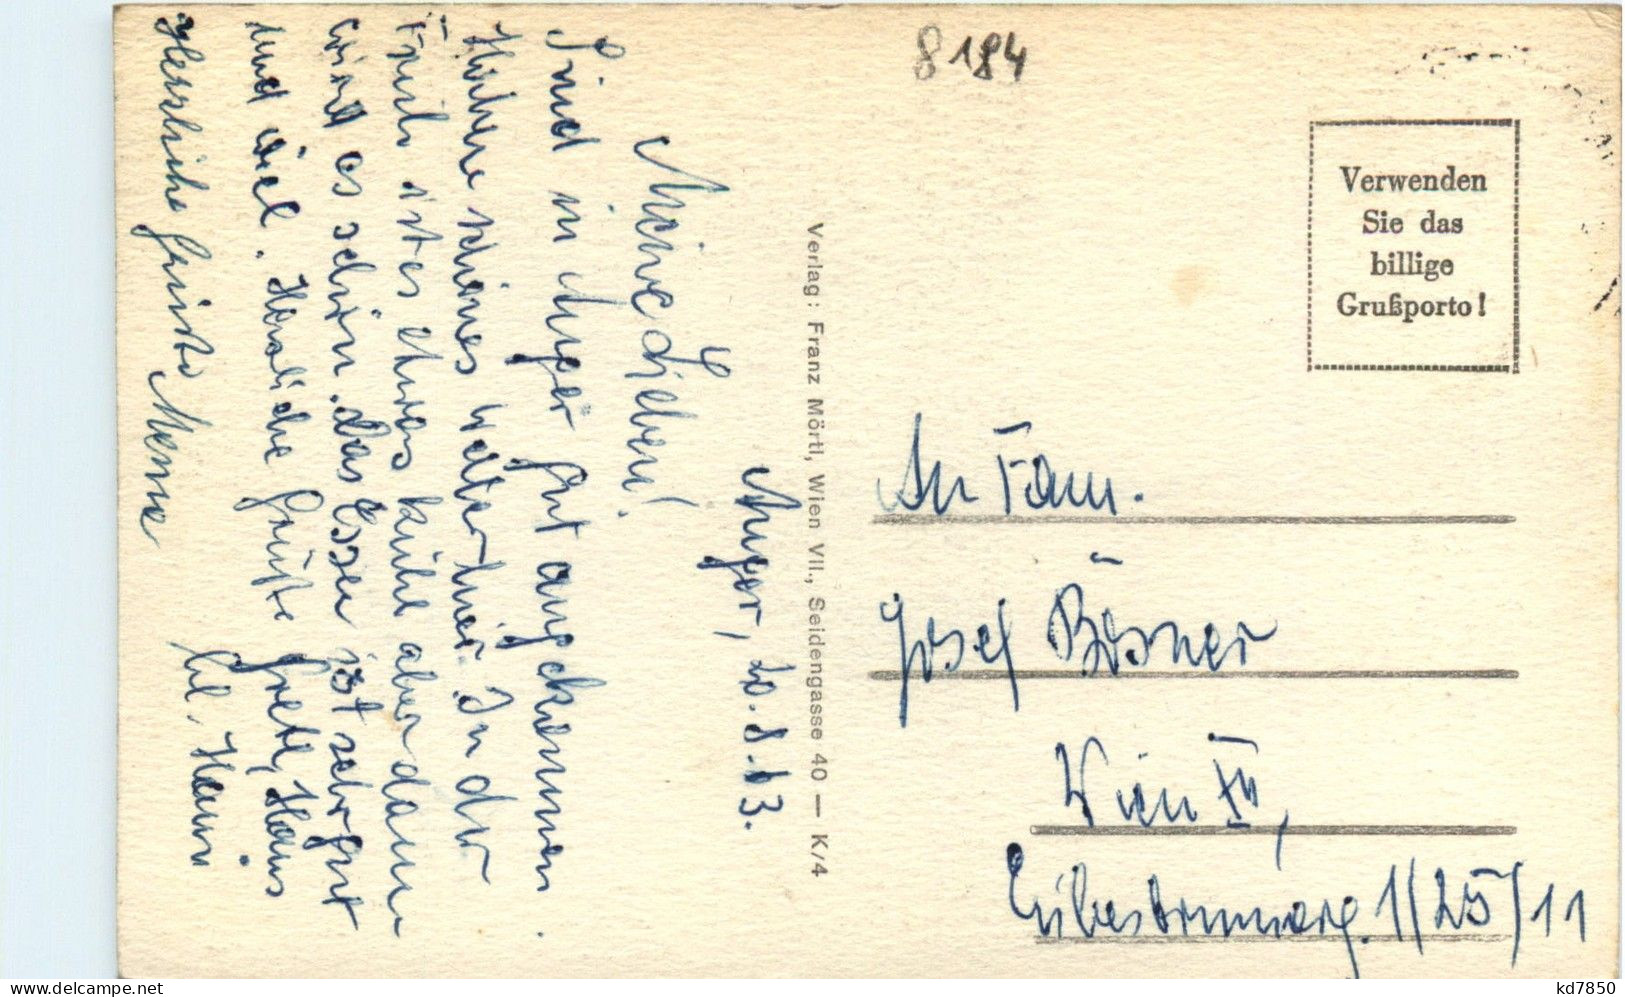 8184
Verwenden
Sie das
billige
Grußporto!
Anger, 20.8.63.
Meine Lieben!
Sind in Anger gut angekommen.
Haben schönes Wetter hier. In der
Früh ist es etwas kühl aber dann
wird es schön. Das Essen ist sehr gut
und viel. Herzliche Grüße Gretl, Hans
Herzliche Grüße
Verlag: Franz Mörtl, Wien VII., Seidengasse 40 — K/4
An Fam.
Josef Bösner
Wien XV,
1/25/11
kd7850